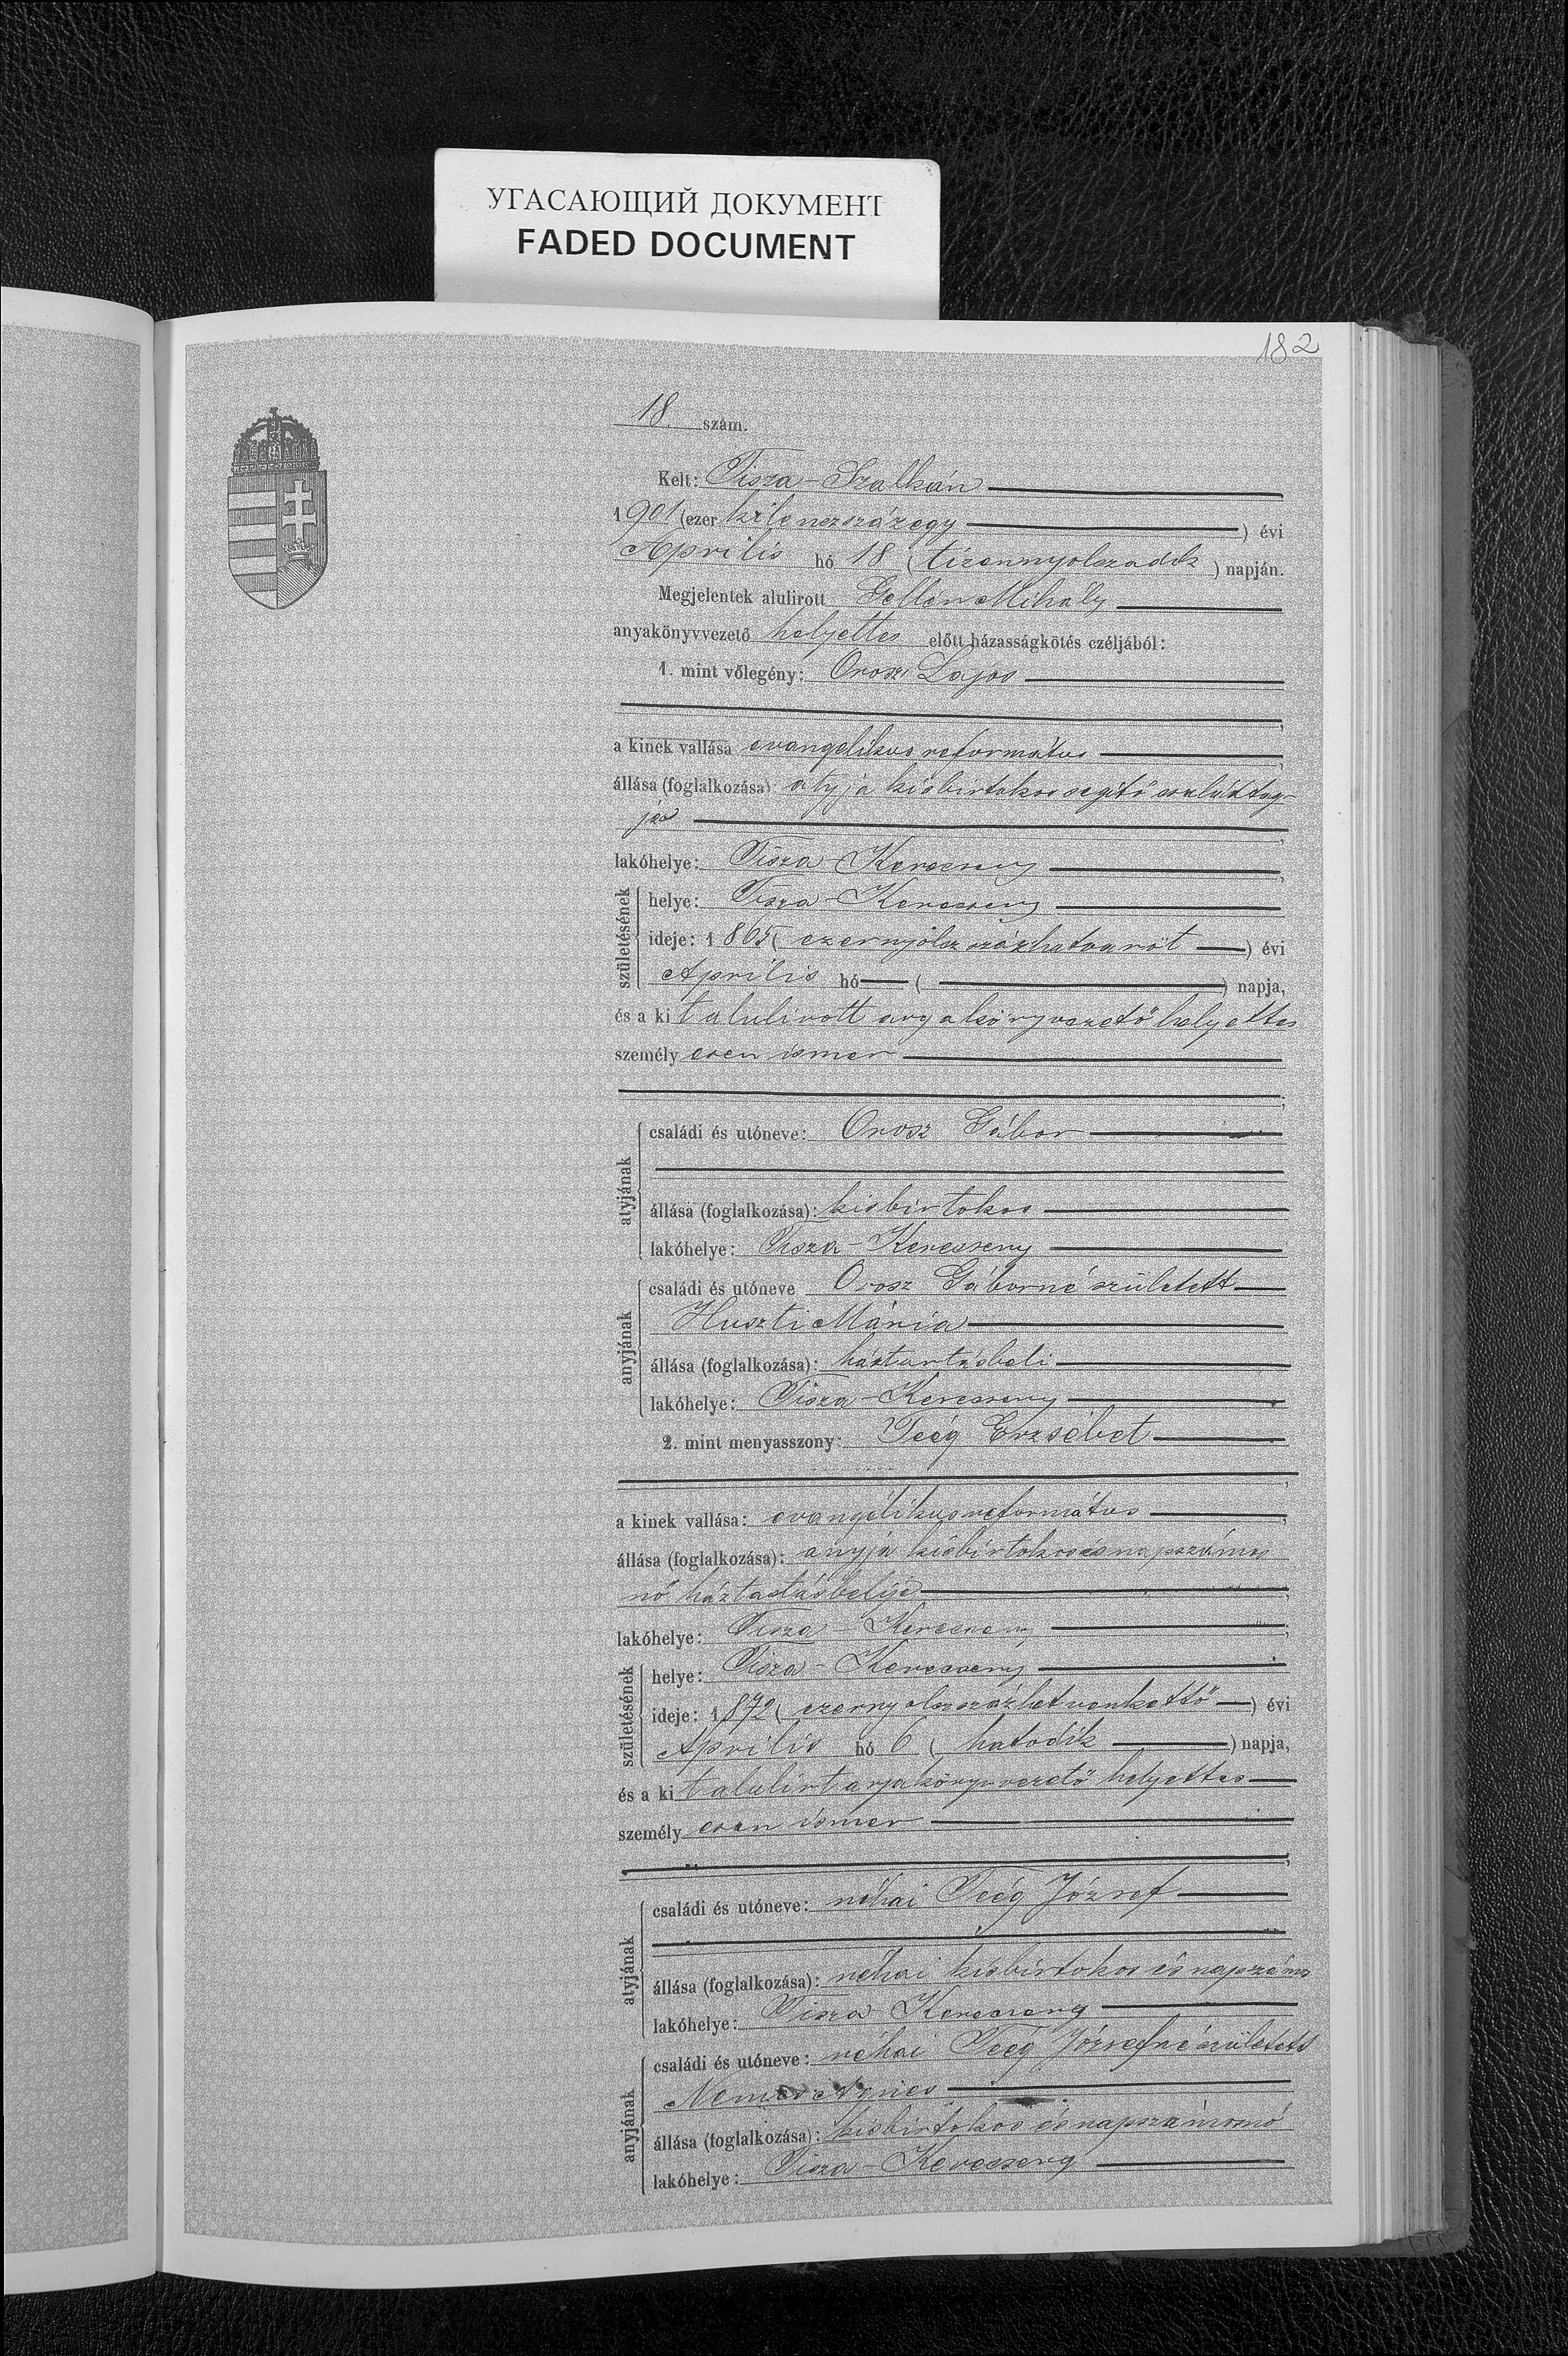 УГАСАЮЩИЙ ДОКУМЕНТ
FADED DOCUMENT
182
18. szám.
Kelt: Tisza-Szalkán
1901 (ezer kilenczszázegy) évi
Április hó 18 (tizennyolczadik) napján.
Megjelentek alulirott Gellén Mihály
anyakönyvvezető helyettes előtt házasságkötés czéljából:
1. mint vőlegény: Orosz Lajos
a kinek vallása evangelikus református
állása (foglalkozása) atyja kisbirtokos segitő családtag-
ja
lakóhelye: Tisza-Kerecseny
születésének
helye: Tisza-Kerecseny
ideje: 1865 (ezernyolczszázhatvanöt) évi
Április hó ( ) napja,
és a kit alulirott anyakönyvvezető helyettes
személyesen ismer
atyjának
családi és utóneve: Orosz Gábor
állása (foglalkozása): kisbirtokos
lakóhelye: Tisza-Kerecseny
anyjának
családi és utóneve Orosz Gáborné született
Huszti Mária
állása (foglalkozása): háztartásbeli
lakóhelye: Tisza-Kerecseny
2. mint menyasszony: Teég Erzsébet
a kinek vallása: evangélikus református
állása (foglalkozása): anyja kisbirtokos és napszámos
nő háztartásbelije
lakóhelye: Tisza-Kerecseny
születésének
helye: Tisza-Kerecseny
ideje: 1872 (ezernyolczszázhetvenkettő) évi
Április hó 6 (hatodik) napja,
és a kit alulirt anyakönyvvezető helyettes
személyesen ismer
atyjának
családi és utóneve: néhai Teég József
állása (foglalkozása): néhai kisbirtokos és napszámos
lakóhelye: Tisza-Kerecseny
anyjának
családi és utóneve: néhai Teég Józsefné született
Nemes Ágnes
állása (foglalkozása): kisbirtokos és napszámosnő
lakóhelye: Tisza-Kerecseny